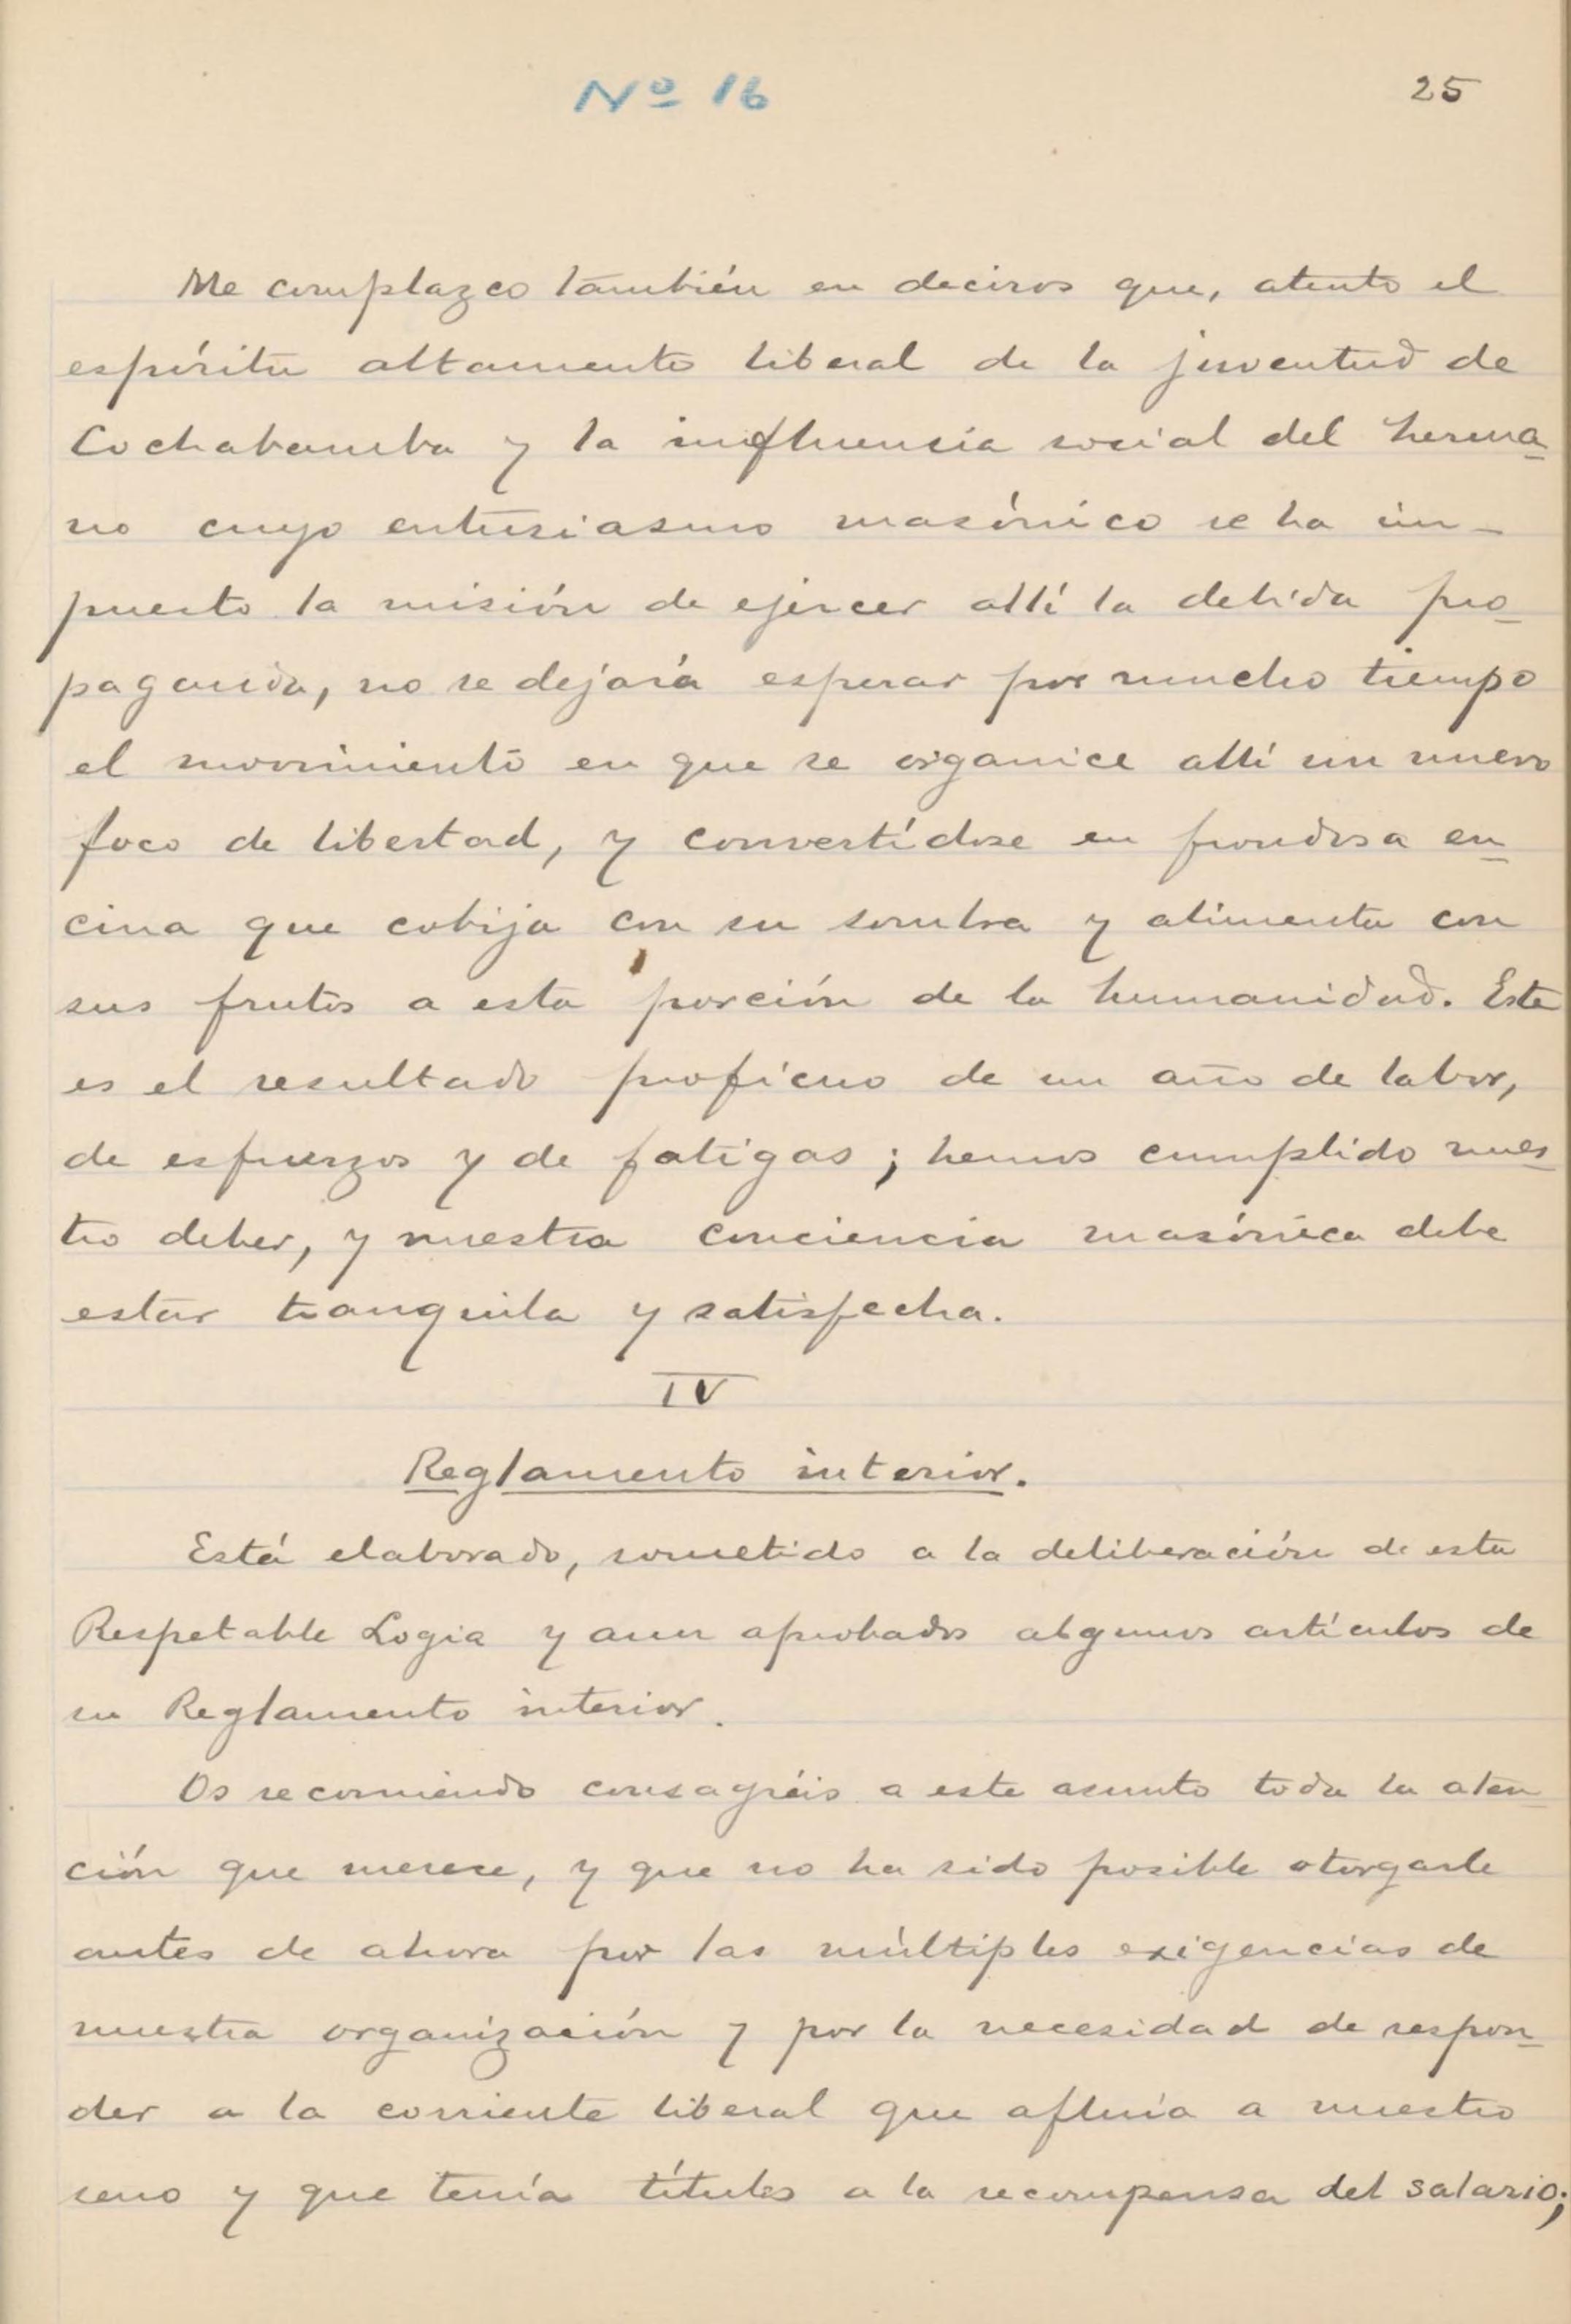 Nº 16
25
Me complazco también en deciros que, atento el
espíritu altamente liberal de la juventud de
Cochabamba y la influencia social del herma-
no cuyo entusiasmo masónico se ha im-
puesto la misión de ejercer allí la debida pro-
paganda, no se dejará esperar por mucho tiempo
el movimiento en que se organice allí un nuevo
foco de libertad, y convertídose en frondosa en-
cina que cobija con su sombra y alimenta con
sus frutos a esta porción de la humanidad. Este
es el resultado proficuo de un año de labor,
de esfuerzos y de fatigas; hemos cumplido nues-
tro deber, y nuestra conciencia masónica debe
estar tranquila y satisfecha.
IV
Reglamento interior.
Está elaborado, sometido a la deliberación de esta
Respetable Logia y aun aprobados algunos artículos de
su Reglamento interior.
Os recomiendo consagréis a este asunto toda la aten-
ción que merece, y que no ha sido posible otorgarle
antes de ahora por las múltiples exigencias de
nuestra organización y por la necesidad de respon-
der a la corriente liberal que afluía a nuestro
seno y que tenía títulos a la recompensa del salario;